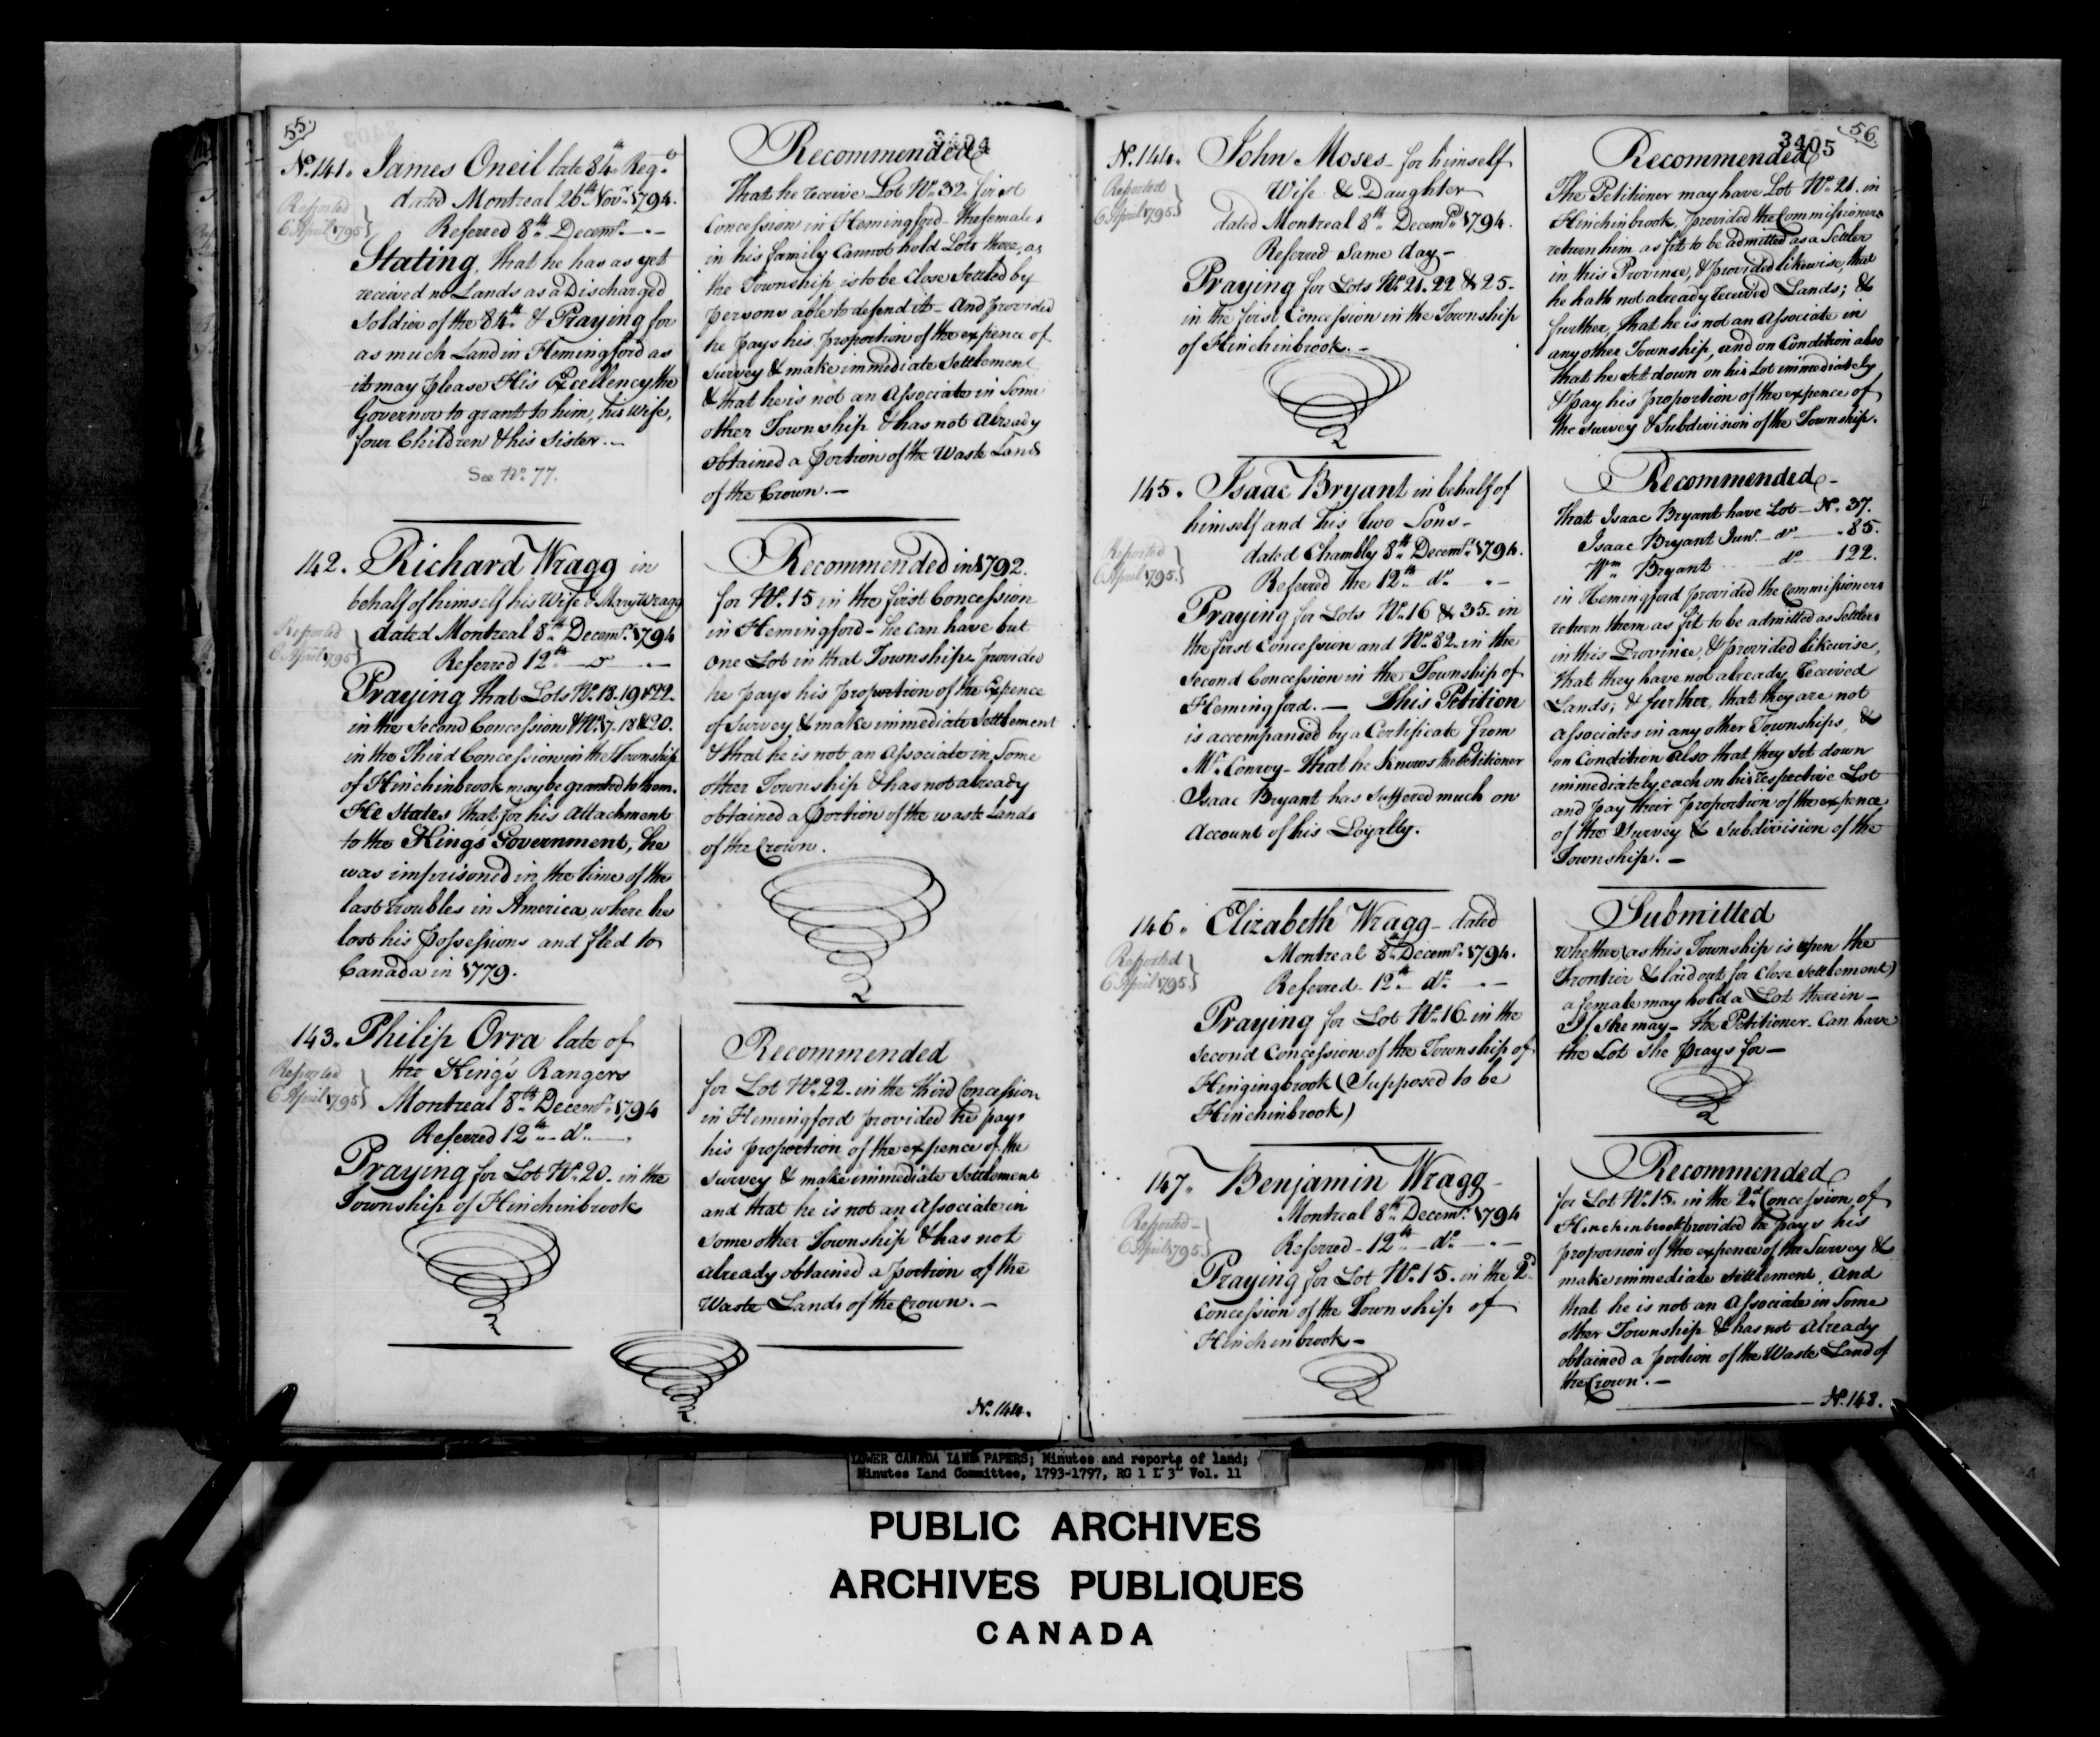 55.
3404
No. 141. James Oneil late 84th Regt.
dated Montreal 26th Novr. 1794.
Reported
6 April 1795}
Referred 8th Decemr. —
Stating, that he has as yet
received no Lands as a Discharged
Soldier of the 84th. & Praying for
as much Land in Hemingford as
it may please His Excellency the
Governor to grant to him, his Wife,
four Children & his Sister. —
See No. 77.
Recommended
That he receive Lot No. 32. first
Concession in Hemingford — the females
in his family Cannot hold Lots there, as
the Township is to be Close Settled by
persons able to defend it — And provided
he pays his proportion of the expence of
Survey & make immediate Settlement
& that he is not an Associate in Some
other Township & has not Already
obtained a portion of the Waste Lands
of the Crown. —
142. Richard Wragg in
behalf of himself his Wife & Mary Wragg
Reported
6 April 1795}
dated Montreal 8th. Decemr. 1794
Referred 12th — do —
Praying that Lots No. 18. 19 & 22.
in the Second Concession & No. 17. 18 & 20.
in the Third Concession in the Township
of Hinchinbrook may be granted to them.
He States that for his Attachment
to the Kings Government, he
was imprisoned in the time of the
last troubles in America, where he
lost his possessions and fled to
Canada in 1779.
Recommended in 1792.
for No. 15 in the first Concession
in Hemingford — he can have but
one Lot in that Township — provided
he pays his proportion of the Expence
of Survey & make immediate Settlement
& that he is not an Associate in Some
other Township & has not already
obtained a portion of the waste Lands
of the Crown.
143. Philip Orra late of
the King's Rangers
Reported
6 April 1795}
Montreal 8th. Decemr. 1794
Referred 12th. — do. —
Praying for Lot No. 20. in the
Township of Hinchinbrook
Recommended
for Lot No. 22. in the third Concession
in Hemingford provided he pays
his proportion of the expence of the
Survey & make immediate Settlement
and that he is not an Associate in
some other Township & has not
already obtained a portion of the
Waste Lands of the Crown. —
No. 144.
56
3405
No. 144. John Moses — for himself
Wife & Daughter
Reported
6 April 1795}
dated Montreal 8th. Decemr. 1794.
Referred Same day —
Praying for Lots No. 21. 22 & 25.
in the first Concession in the Township
of Hinchinbrook. —
Recommended
The Petitioner may have Lot No. 21. in
Hinchinbrook, provided the Commissioners
return him as fit to be admitted as a Settler
in this Province, & provided likewise, that
he hath not already received Lands; &
further, that he is not an Associate in
any other Township, and on Condition also
that he set down on his Lot immediately
& pay his proportion of the expence of
the Survey & Subdivision of the Township.
145. Isaac Bryant in behalf of
himself and his two Sons —
Reported
6 April 1795}
dated Chambly 8th. Decemr. 1794.
Referred the 12th. do. —
Praying for Lots No. 16 & 35. in
the first Concession and No. 82. in the
Second Concession in the Township of
Hemingford. — This Petition
is accompanied by a Certificate from
Mr. Conroy — that he Knows the Petitioner
Isaac Bryant has Suffered much on
Account of his Loyalty.
Recommended —
That Isaac Bryant have Lot — No. 37.
Isaac Bryant Junr. do — 85.
Wm. Bryant do 122.
in Hemingford provided the Commissioners
return them as fit to be admitted as Settlers
in this Province, & provided likewise,
that they have not already received
Lands; & further, that they are not
Associates in any other Townships, &
on Condition also that they set down
immediately each on his respective Lot
and pay their proportion of the expence
of the Survey & Subdivision of the
Township. —
146. Elizabeth Wragg — dated
Reported
6 April 1795}
Montreal 8th Decemr. 1794.
Referred — 12th. do. —
Praying for Lot No. 16. in the
Second Concession of the Township of
Hingingbrook (Supposed to be
Hinchinbrook)
Submitted
Whether (as this Township is upon the
Frontier & laid out for Close Settlement)
a female may hold a Lot therein —
If She may — the Petitioner Can have
the Lot She prays for —
147. Benjamin Wragg —
Reported —
6 April 1795.}
Montreal 8th. Decemr. 1794
Referred — 12th — do. —
Praying for Lot No. 15. in the 2d.
Concession of the Township of
Hinchinbrook —
Recommended
for Lot No. 15. in the 2d. Concession of
Hinchinbrook provided he pays his
proportion of the expence of the Survey &
make immediate Settlement, And
that he is not an Associate in Some
other Township & has not Already
obtained a portion of the Waste Land of
the Crown. —
No. 148.
LOWER CANADA LAND PAPERS; Minutes and reports of land;
Minutes Land Committee, 1793-1797, RG 1 L 3L Vol. 11
PUBLIC ARCHIVES
ARCHIVES PUBLIQUES
CANADA